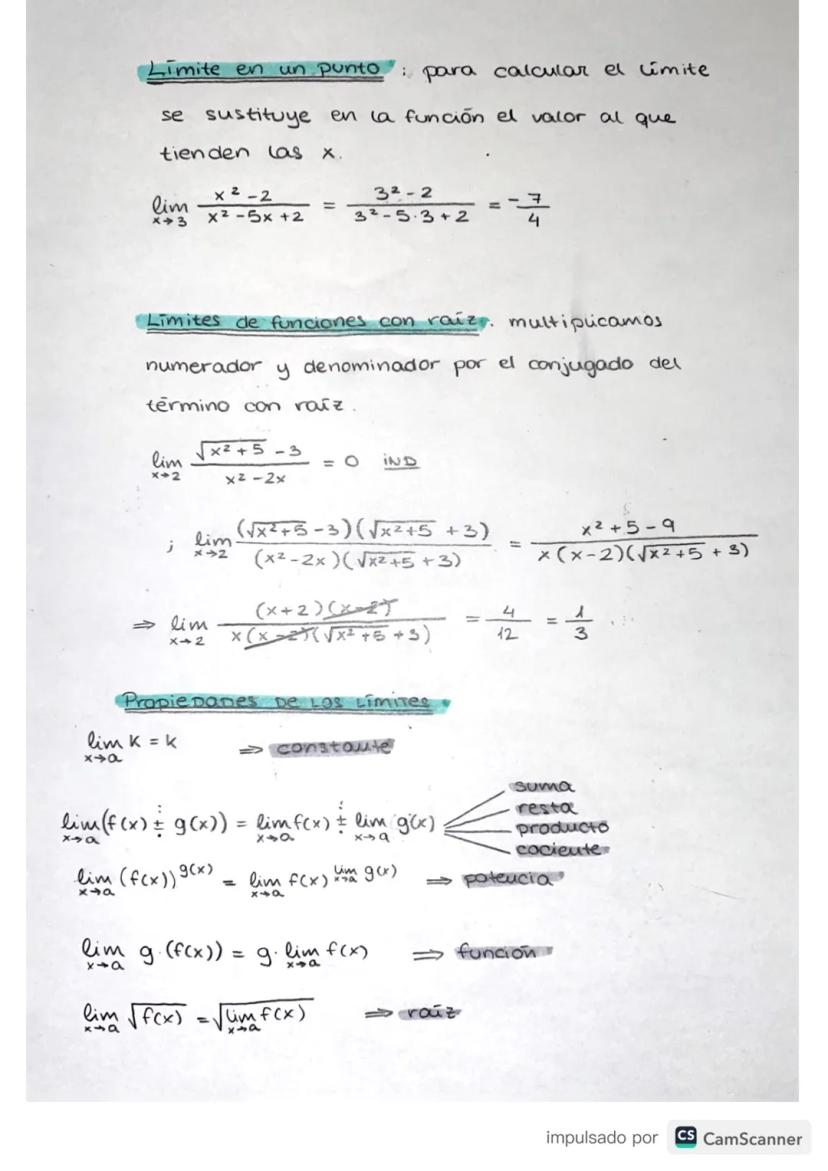 Límite en un punto : para calcular el límite
se sustituye en la función el valor al que
tienden las x.
lim x→3 (x² - 2)/(x² - 5x + 2) = (3² - 2)/(3² - 5·3 + 2) = - 7/4
Límites de funciones con raíz. multiplicamos
numerador y denominador por el conjugado del
término con raíz.
lim x→2 (√(x² + 5) - 3)/(x² - 2x) = 0 IND
; lim x→2 ((√(x²+5) - 3)(√(x²+5) + 3))/((x² - 2x)(√(x²+5) + 3)) = (x² + 5 - 9)/(x(x-2)(√(x²+5) + 3))
⇒ lim x→2 ((x+2)(x-2))/(x(x-2)(√(x²+5) + 3)) = 4/12 = 1/3
Propiedades de los límites
lim x→a K = K ⇒ constante
lim x→a (f(x) ± g(x)) = lim x→a f(x) ± lim x→a g(x)
suma
resta
producto
cociente
lim x→a (f(x))^g(x) = lim x→a f(x)^(lim x→a g(x)) ⇒ potencia
lim x→a g·(f(x)) = g· lim x→a f(x) ⇒ función
lim x→a √f(x) = √(lim x→a f(x)) ⇒ raíz
impulsado por CS CamScanner